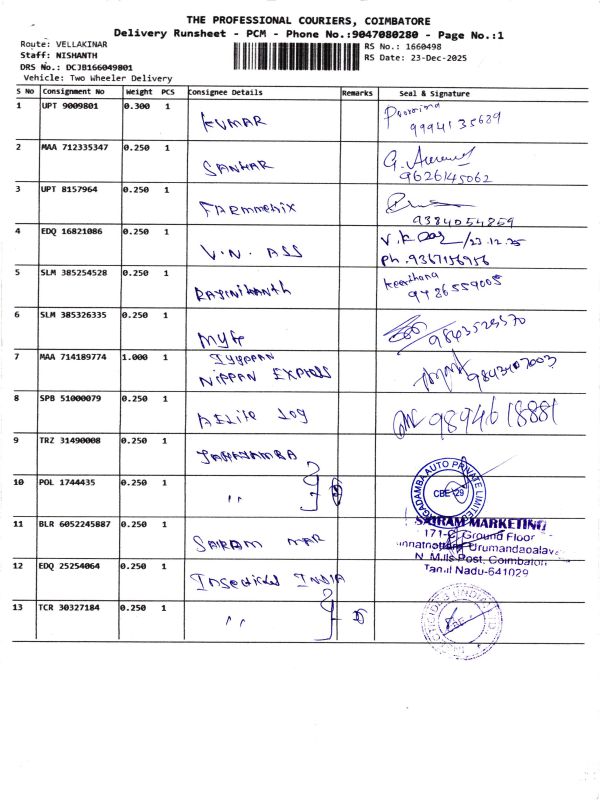 THE PROFESSIONAL COURIERS, COIMBATORE
Delivery Runsheet - PCM - Phone No.:9047080280 - Page No.:1
Route: VELLAKINAR
Staff: NISHANTH
DRS No.: DCJB166049801
Vehicle: Two Wheeler Delivery
RS No.: 1660498
RS Date: 23-Dec-2025
S No Consignment No Weight PCS Consignee Details Remarks Seal & Signature
1 UPT 9009801 0.300 1 KUMAR Poornima 9994135689
2 MAA 712335347 0.250 1 SANKAR 9626145062
3 UPT 8157964 0.250 1 9384054859
4 EDQ 16821086 0.250 1 V.N. ASS V.K /23.12.25
Ph.9367156956
5 SLM 385254528 0.250 1 RAJINIKANTH Keerthana 9486559005
6 SLM 385326335 0.250 1 9843529570
7 MAA 714189774 1.000 1 IYYAPPAN
NIPPAN EXPRESS 9843107003
8 SPB 51000079 0.250 1 AELITE LOG 9894618881
9 TRZ 31490008 0.250 1
10 POL 1744435 0.250 1 ,, GADAMBA AUTO PRIVATE LIMITED CBE-29
11 BLR 6052245887 0.250 1 SAIRAM MAR SAIRAM MARKETING
171-C, Ground Floor
N.Mills Post, Coimbatore
Tamil Nadu-641029
12 EDQ 25254064 0.250 1 INSECTICIDS INDIA
13 TCR 30327184 0.250 1 ,,